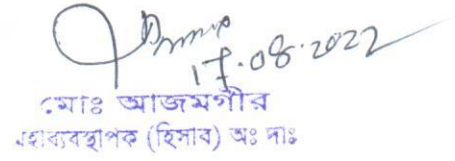 17.08.2022
মোঃ আজমগীর
মহাব্যবস্থাপক (হিসাব) অঃ দাঃ